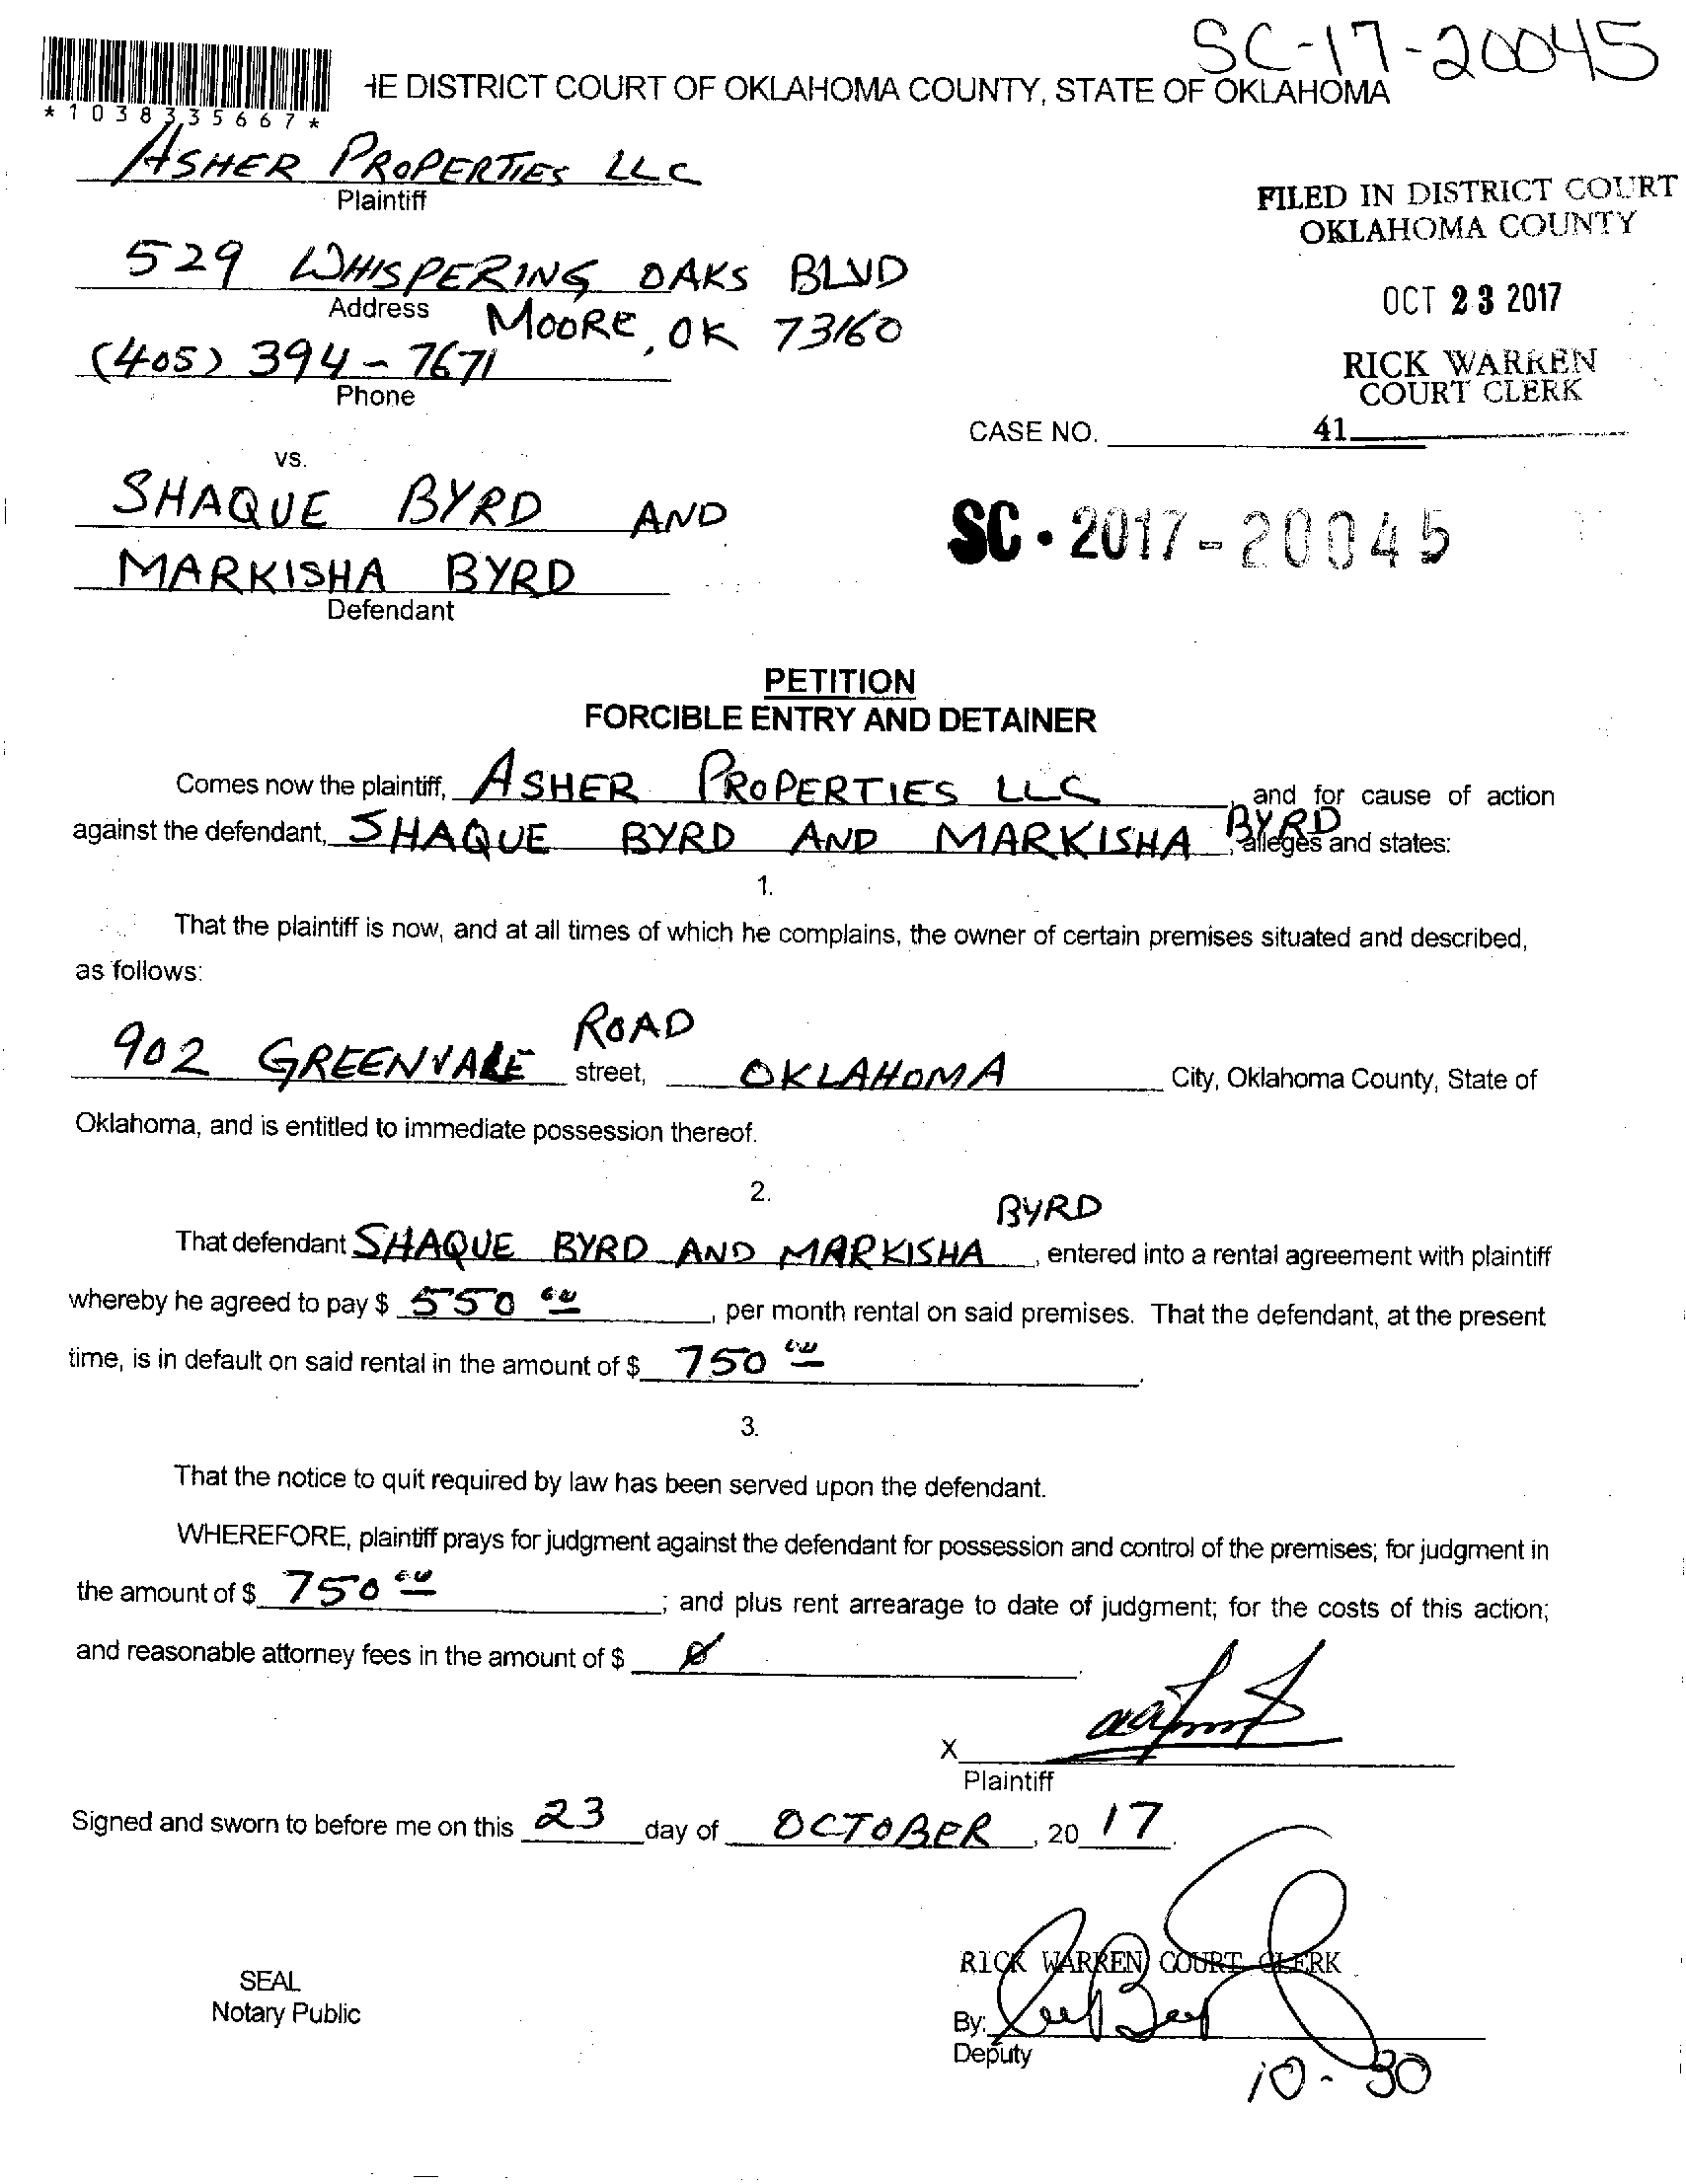 SC-17-20045
HE DISTRICT COURT OF OKLAHOMA COUNTY, STATE OF OKLAHOMA
*1038335667*
ASHER PROPERTIES LLC
Plaintiff
FILED IN DISTRICT COURT
OKLAHOMA COUNTY
529 WHISPERING OAKS BLVD
Address
MOORE, OK 73160
OCT 23 2017
(405) 394-7671
Phone
RICK WARREN
COURT CLERK
CASE NO. 41
vs.
SHAQUE BYRD AND
MARKISHA BYRD
Defendant
SC · 2017-20045
PETITION
FORCIBLE ENTRY AND DETAINER
Comes now the plaintiff, ASHER PROPERTIES LLC, and for cause of action
against the defendant, SHAQUE BYRD AND MARKISHA BYRD, alleges and states:
1.
That the plaintiff is now, and at all times of which he complains, the owner of certain premises situated and described,
as follows:
902 GREENVALE ROAD street, OKLAHOMA City, Oklahoma County, State of
Oklahoma, and is entitled to immediate possession thereof.
2.
That defendant SHAQUE BYRD AND MARKISHA BYRD, entered into a rental agreement with plaintiff
whereby he agreed to pay $ 550 00, per month rental on said premises. That the defendant, at the present
time, is in default on said rental in the amount of $ 750 00.
3.
That the notice to quit required by law has been served upon the defendant.
WHEREFORE, plaintiff prays for judgment against the defendant for possession and control of the premises; for judgment in
the amount of $ 750 00; and plus rent arrearage to date of judgment; for the costs of this action;
and reasonable attorney fees in the amount of $ Ø.
X
Plaintiff
Signed and sworn to before me on this 23 day of OCTOBER, 20 17.
RICK WARREN COURT CLERK
SEAL
Notary Public
By:
Deputy
10-30